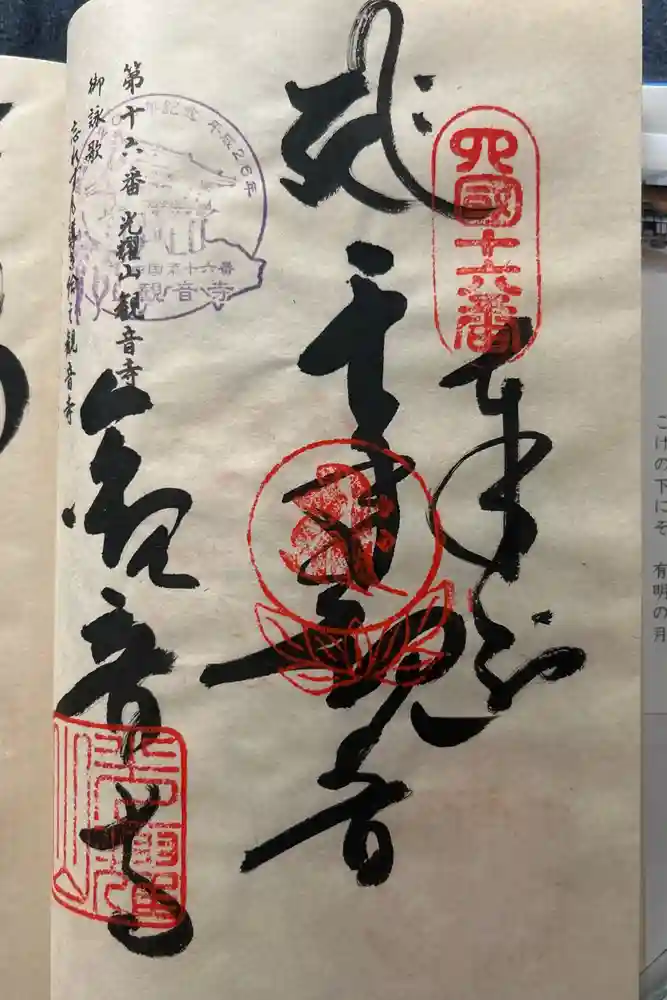 四國十六番
奉納
千手観音
第十六番 光耀山観音寺
御詠歌
観音寺
年記念 平成26年
四国第十六番
観音寺
こけの下にそ 有明の月